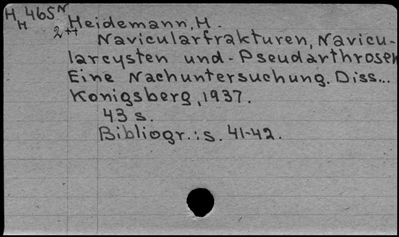 H 465 N
H 2H Heidemann, H.
Navicularfrakturen, Navicu-
larcysten und-Pseudarthrosen
Eine Nachuntersuchung. Diss...
Konigsberg, 1937.
43 s.
Bibliogr.: s. 41-42.